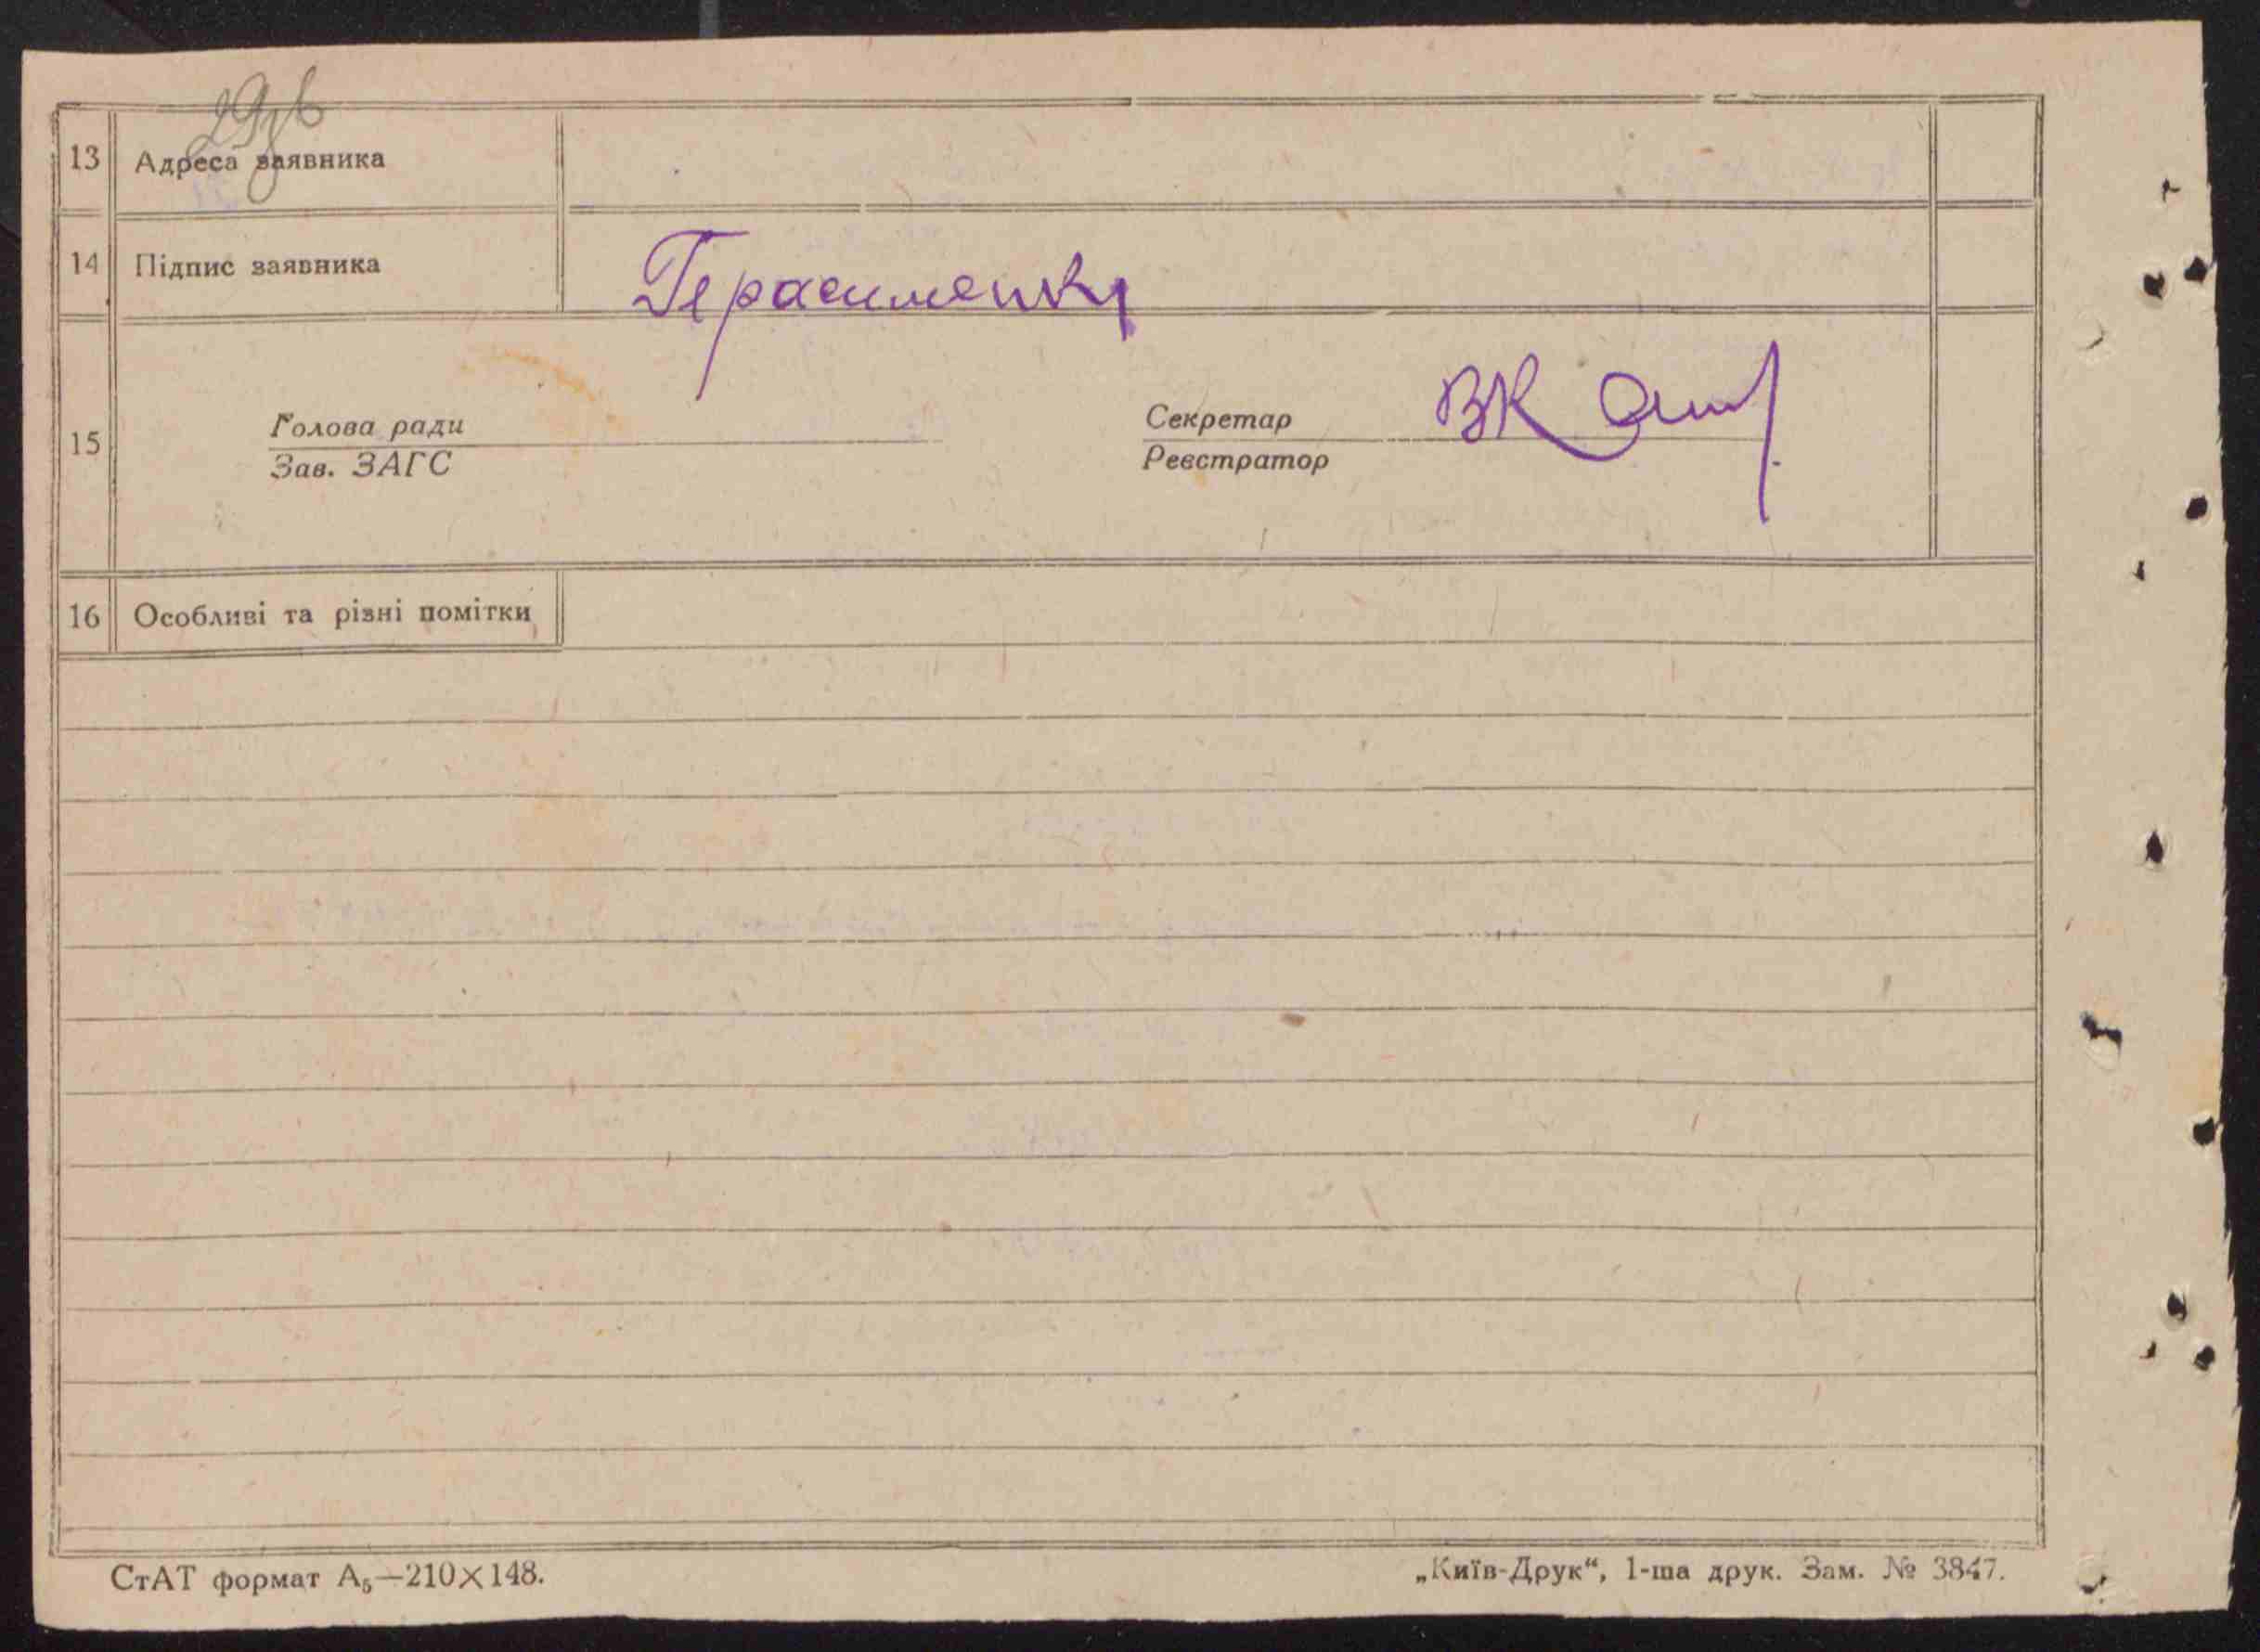 13 Адреса заявника
14 Підпис заявника Герасименко
15 Голова ради Секретар
Зав. ЗАГС Реєстратор
16 Особливі та різні помітки
СтАТ формат А₅—210×148. „Київ-Друк“, 1-ша друк. Зам. № 3847.